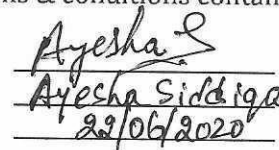 ns & conditions contain
Ayesha S
Ayesha Siddiqa
22/06/2020